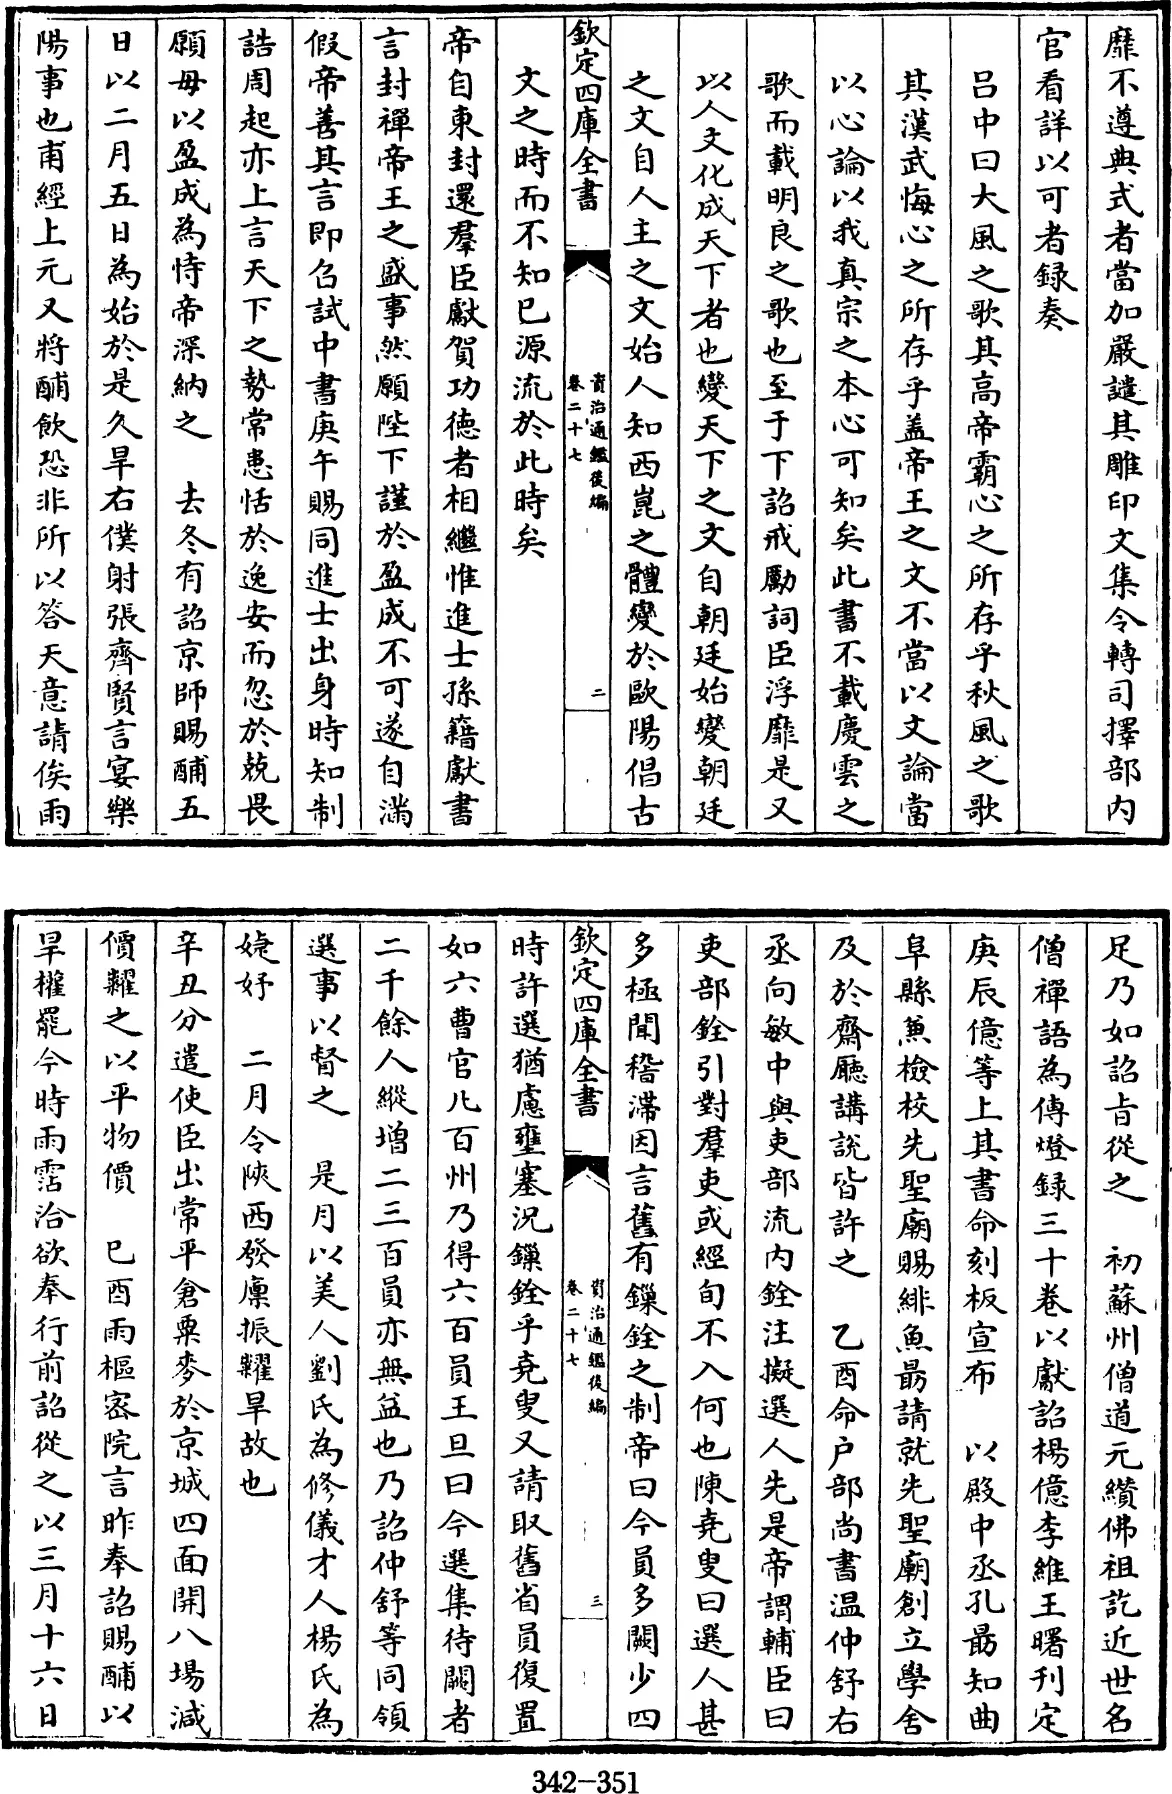 靡不遵典式者當加嚴譴其雕印文集令轉司擇部内
官看詳以可者録奏
吕中曰大風之歌其高帝霸心之所存乎秋風之歌
其漢武悔心之所存乎蓋帝王之文不當以文論當
以心論以我真宗之本心可知矣此書不載慶雲之
歌而載明良之歌也至于下詔戒勵詞臣浮靡是又
以人文化成天下者也變天下之文自朝廷始變朝廷
之文自人主之文始人知西崑之體變於歐陽倡古
欽定四庫全書
資治通鑑後編
卷二十七
二
文之時而不知已源流於此時矣
帝自東封還羣臣獻賀功德者相繼惟進士孫籍獻書
言封禪帝王之盛事然願陛下謹於盈成不可遂自滿
假帝善其言即召試中書庚午賜同進士出身時知制
誥周起亦上言天下之勢常患恬於逸安而忽於兢畏
願毋以盈成為恃帝深納之 去冬有詔京師賜酺五
日以二月五日為始於是久旱右僕射張齊賢言宴樂
陽事也甫經上元又將酺飲恐非所以答天意請俟雨
足乃如詔旨從之 初蘇州僧道元纘佛祖訖近世名
僧禪語為傳燈録三十卷以獻詔楊億李維王曙刊定
庚辰億等上其書命刻板宣布 以殿中丞孔勗知曲
阜縣兼檢校先聖廟賜緋魚勗請就先聖廟創立學舍
及於齋廳講說皆許之 乙酉命户部尚書温仲舒右
丞向敏中與吏部流内銓注擬選人先是帝謂輔臣曰
吏部銓引對羣吏或經旬不入何也陳堯叟曰選人甚
多極聞稽滯因言舊有鏁銓之制帝曰今員多闕少四
欽定四庫全書
資治通鑑後編
卷二十七
三
時許選猶慮壅塞況鏁銓乎堯叟又請取舊省員復置
如六曹官凡百州乃得六百員王旦曰今選集待闕者
二千餘人縱增二三百員亦無益也乃詔仲舒等同領
選事以督之 是月以美人劉氏為修儀才人楊氏為
婕妤 二月令陜西發廩振糶旱故也
辛丑分遣使臣出常平倉粟麥於京城四面開八場減
價糶之以平物價 己酉雨樞密院言昨奉詔賜酺以
旱權罷今時雨霑洽欲奉行前詔從之以三月十六日
342-351